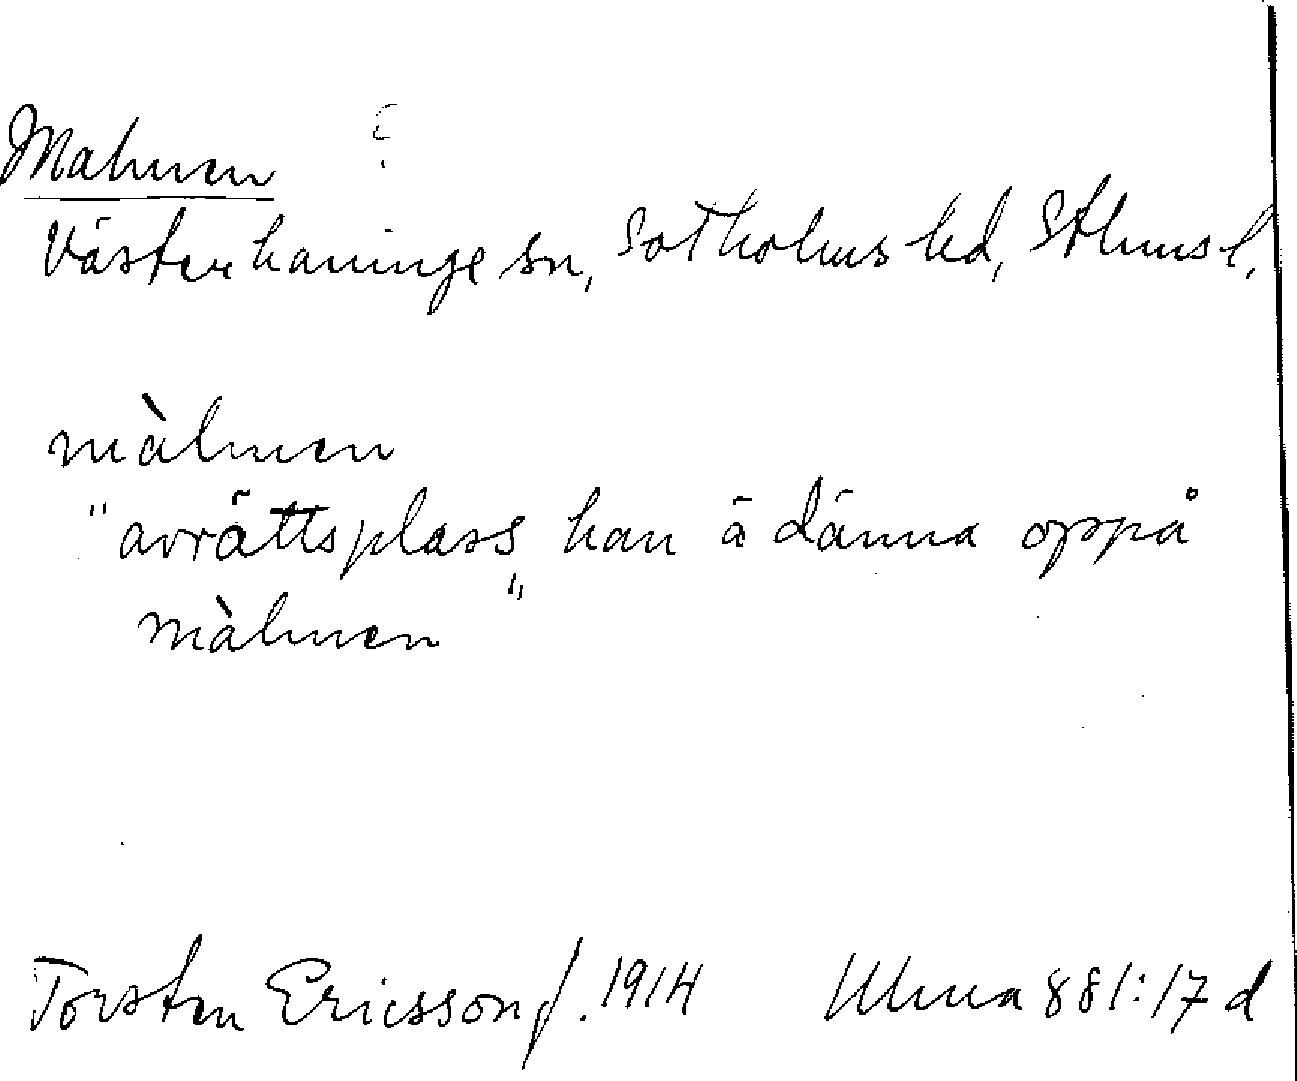 Malmen
Västerhaninge sn, Sotholms hd, Sthms l.
màlmen
"avrättsplass han ä dänna oppå
màlmen"
Torsten Ericsson f. 1914 Ulma 881:17 d